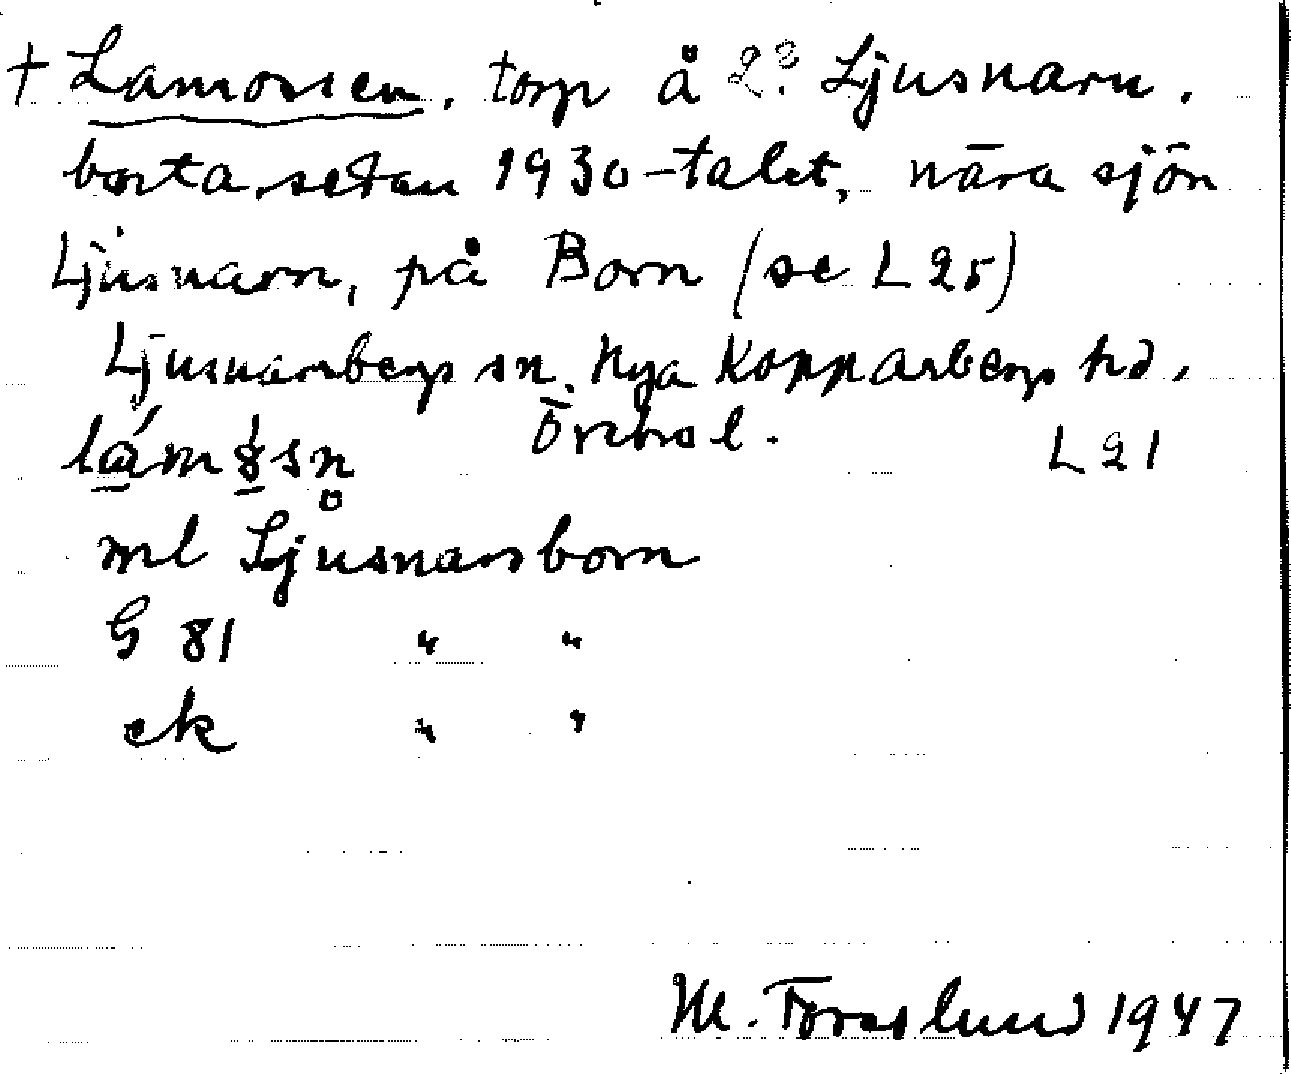 † Lamossen, torp å 2? Ljusnarn.
borta sedan 1930-talet, nära sjön
Ljusnarn, på Born (se L 25)
Ljusnarsbergs sn. Nya Kopparbergs hd,
Örebro l. L 21
ml Ljusnarsborn
G 81 " "
ek " "
M. Forslund 1947